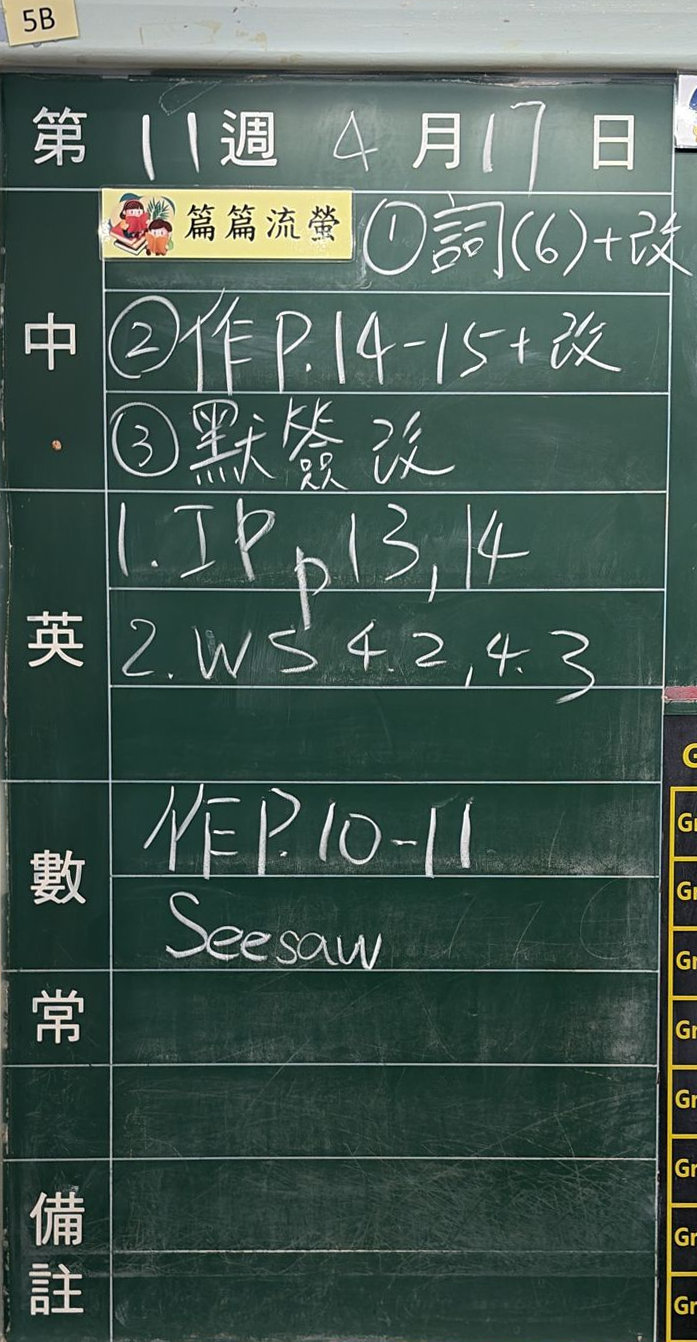 5B
第 11 週 4 月 17 日
中
篇篇流螢 ①詞(6)+改
②作P.14-15+改
③默簽改
英
1. IP p13,14
2. WS 4.2,4.3
數
作P.10-11
Seesaw
常
備註
G
Gr
Gr
Gr
Gr
Gr
Gr
Gr
Gr